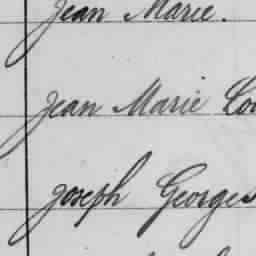 Jean Marie.
Jean Marie
Joseph Georges